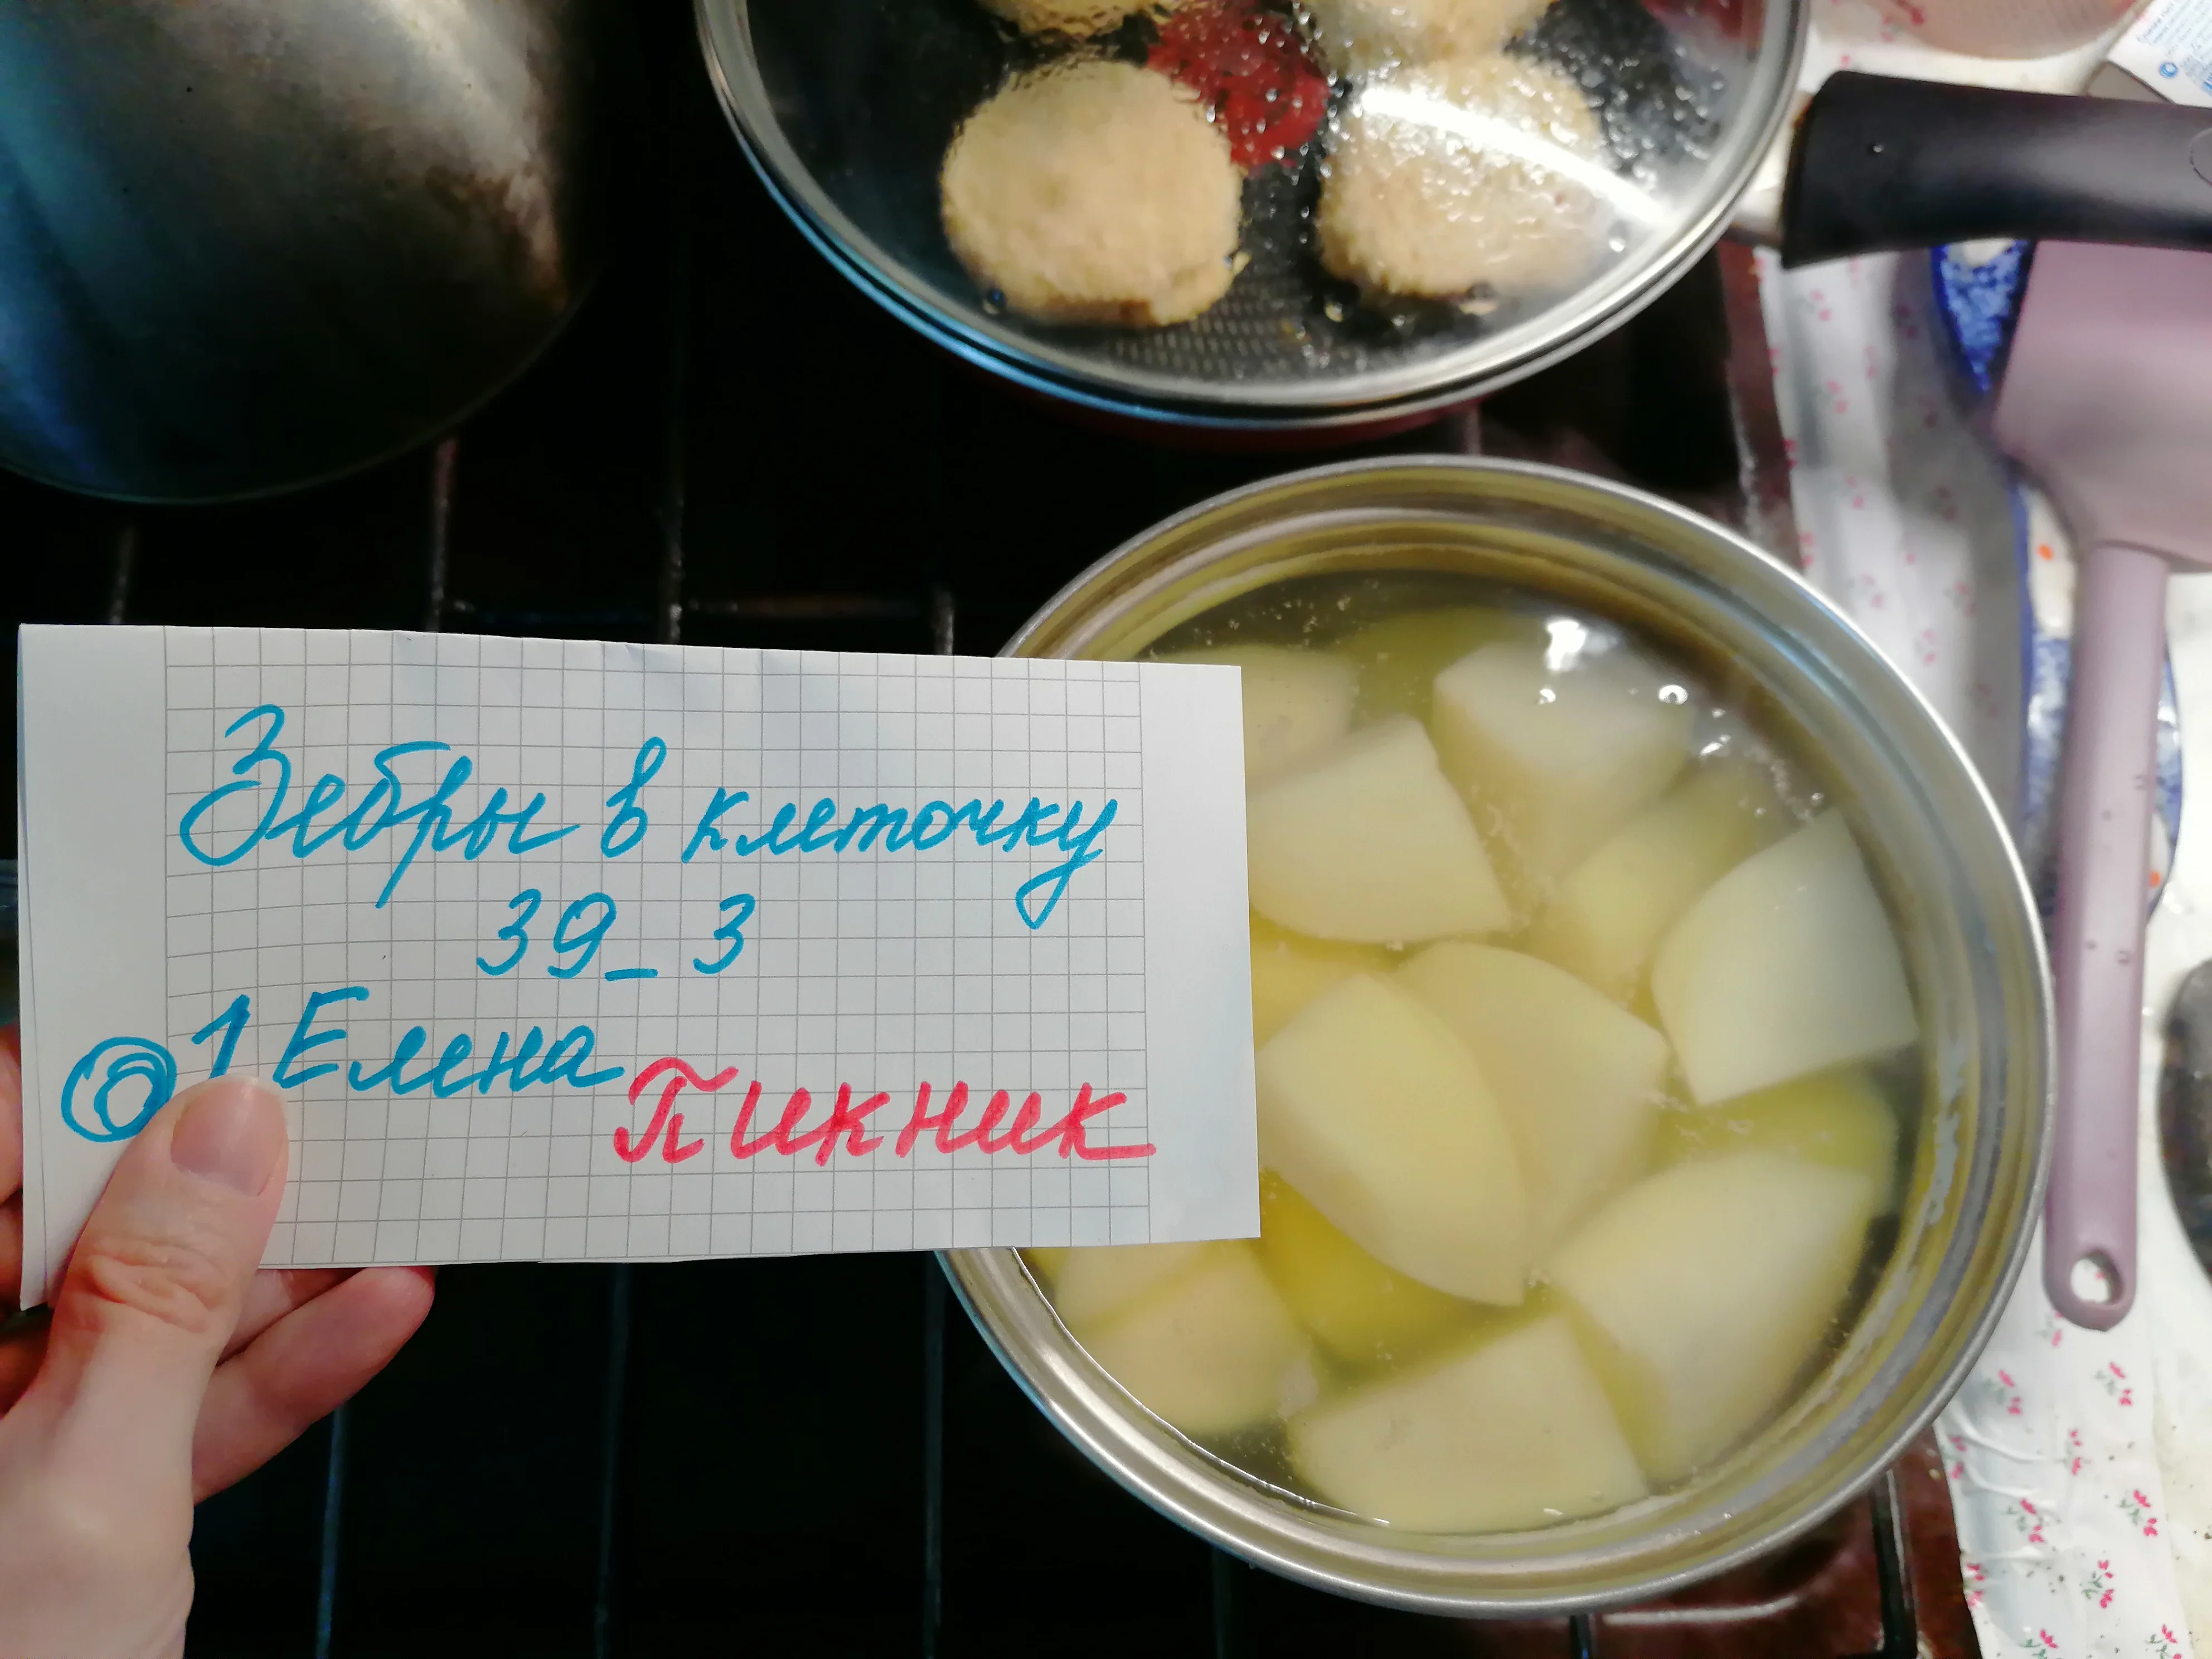 Зебры в клеточку
39_3
@1 Елена
Пикник